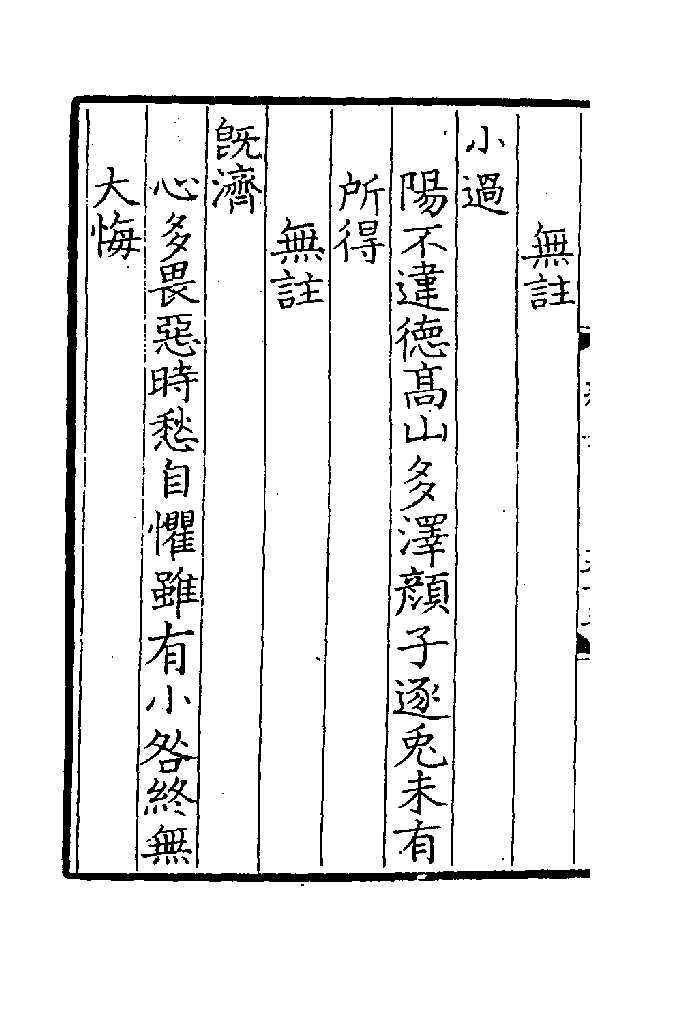 無註
小過
陽不違德髙山多澤顔子逐兎未有
所得
無註
旣濟
心多畏惡時愁自懼雖有小咎終無
大悔